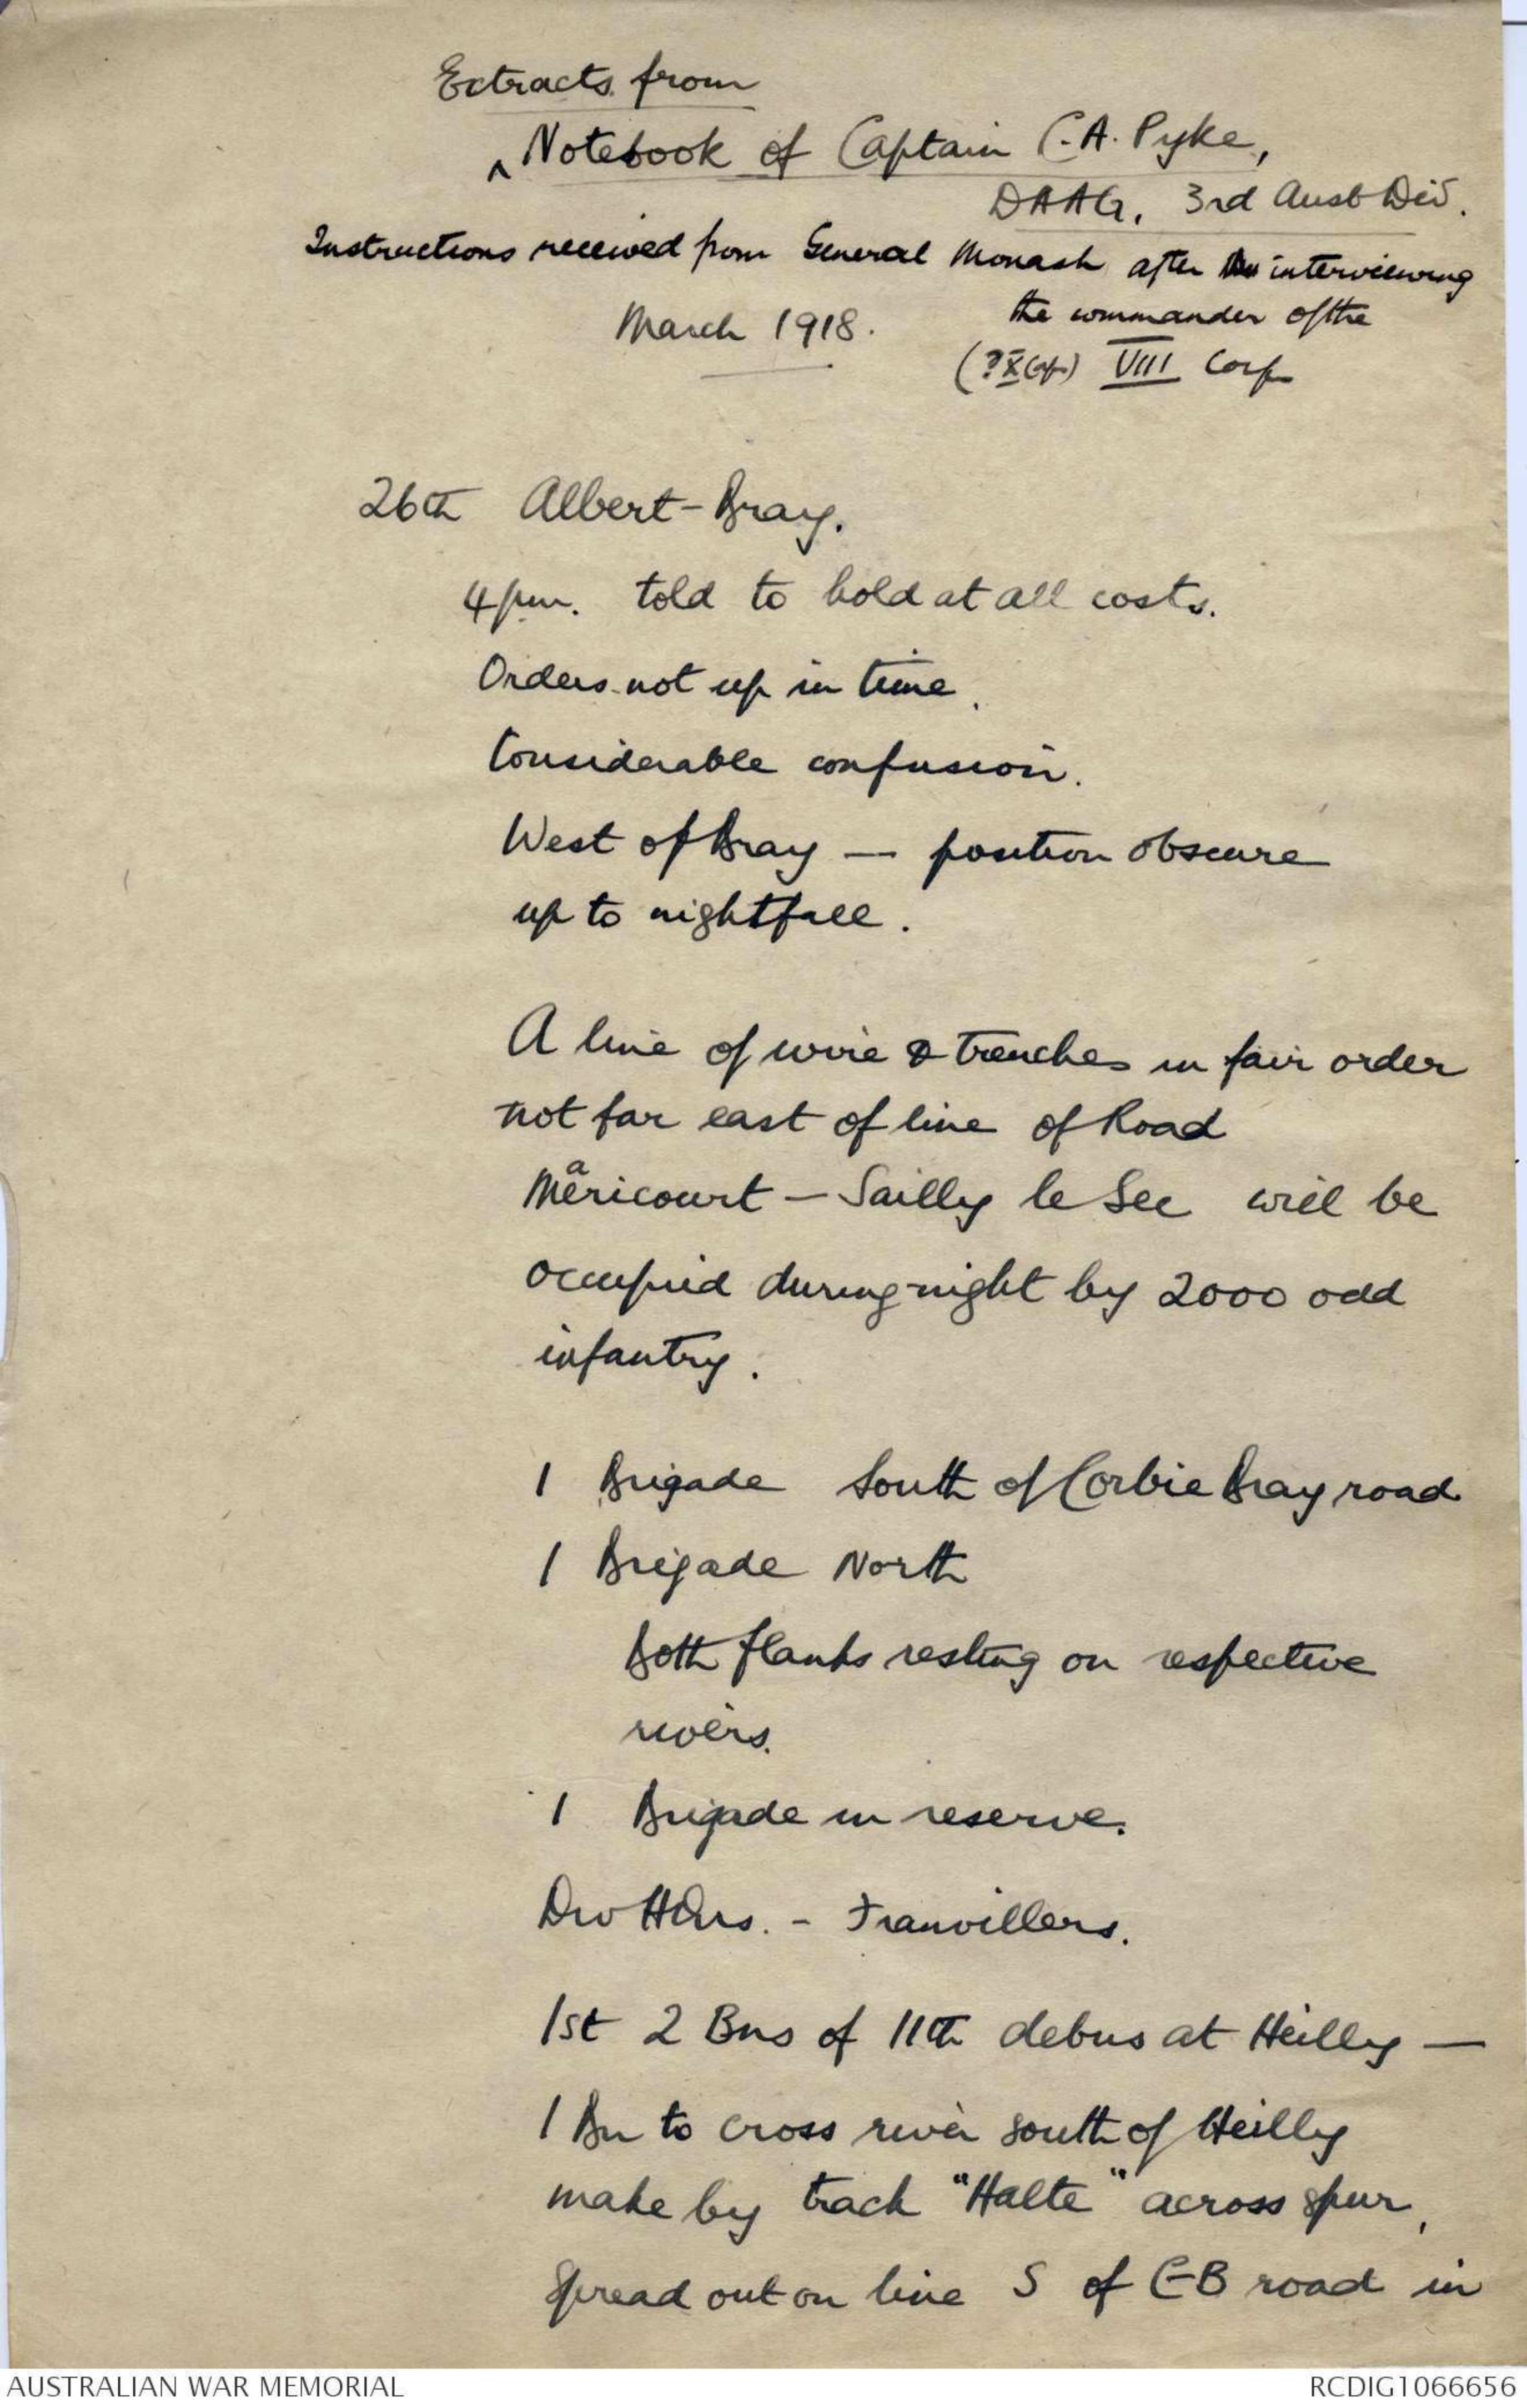 Extracts from
^ Notebook of Captain C.A. Pyke,
DAAG, 3rd Aust Div.
Instructions received from General Monash after interviewing
the commander of the
March 1918.
(?X Gp) VIII Corps
26th Albert-Bray.
4 pm. told to hold at all costs.
Orders not up in time.
Considerable confusion.
West of Bray — position obscure
up to nightfall.
A line of wire & trenches in fair order
not far east of line of Road
Méricourt — Sailly le Sec will be
occupied during night by 2000 odd
infantry.
1 Brigade South of Corbie Bray road
1 Brigade North
Both flanks resting on respective
rivers.
1 Brigade in reserve.
Div HQrs. - Franvillers.
1st 2 Bns of 11th debus at Heilly —
1 Bn to cross river south of Heilly
make by track "Halte" across spur,
Spread out on line S of C-B road in
AUSTRALIAN WAR MEMORIAL
RCDIG1066656